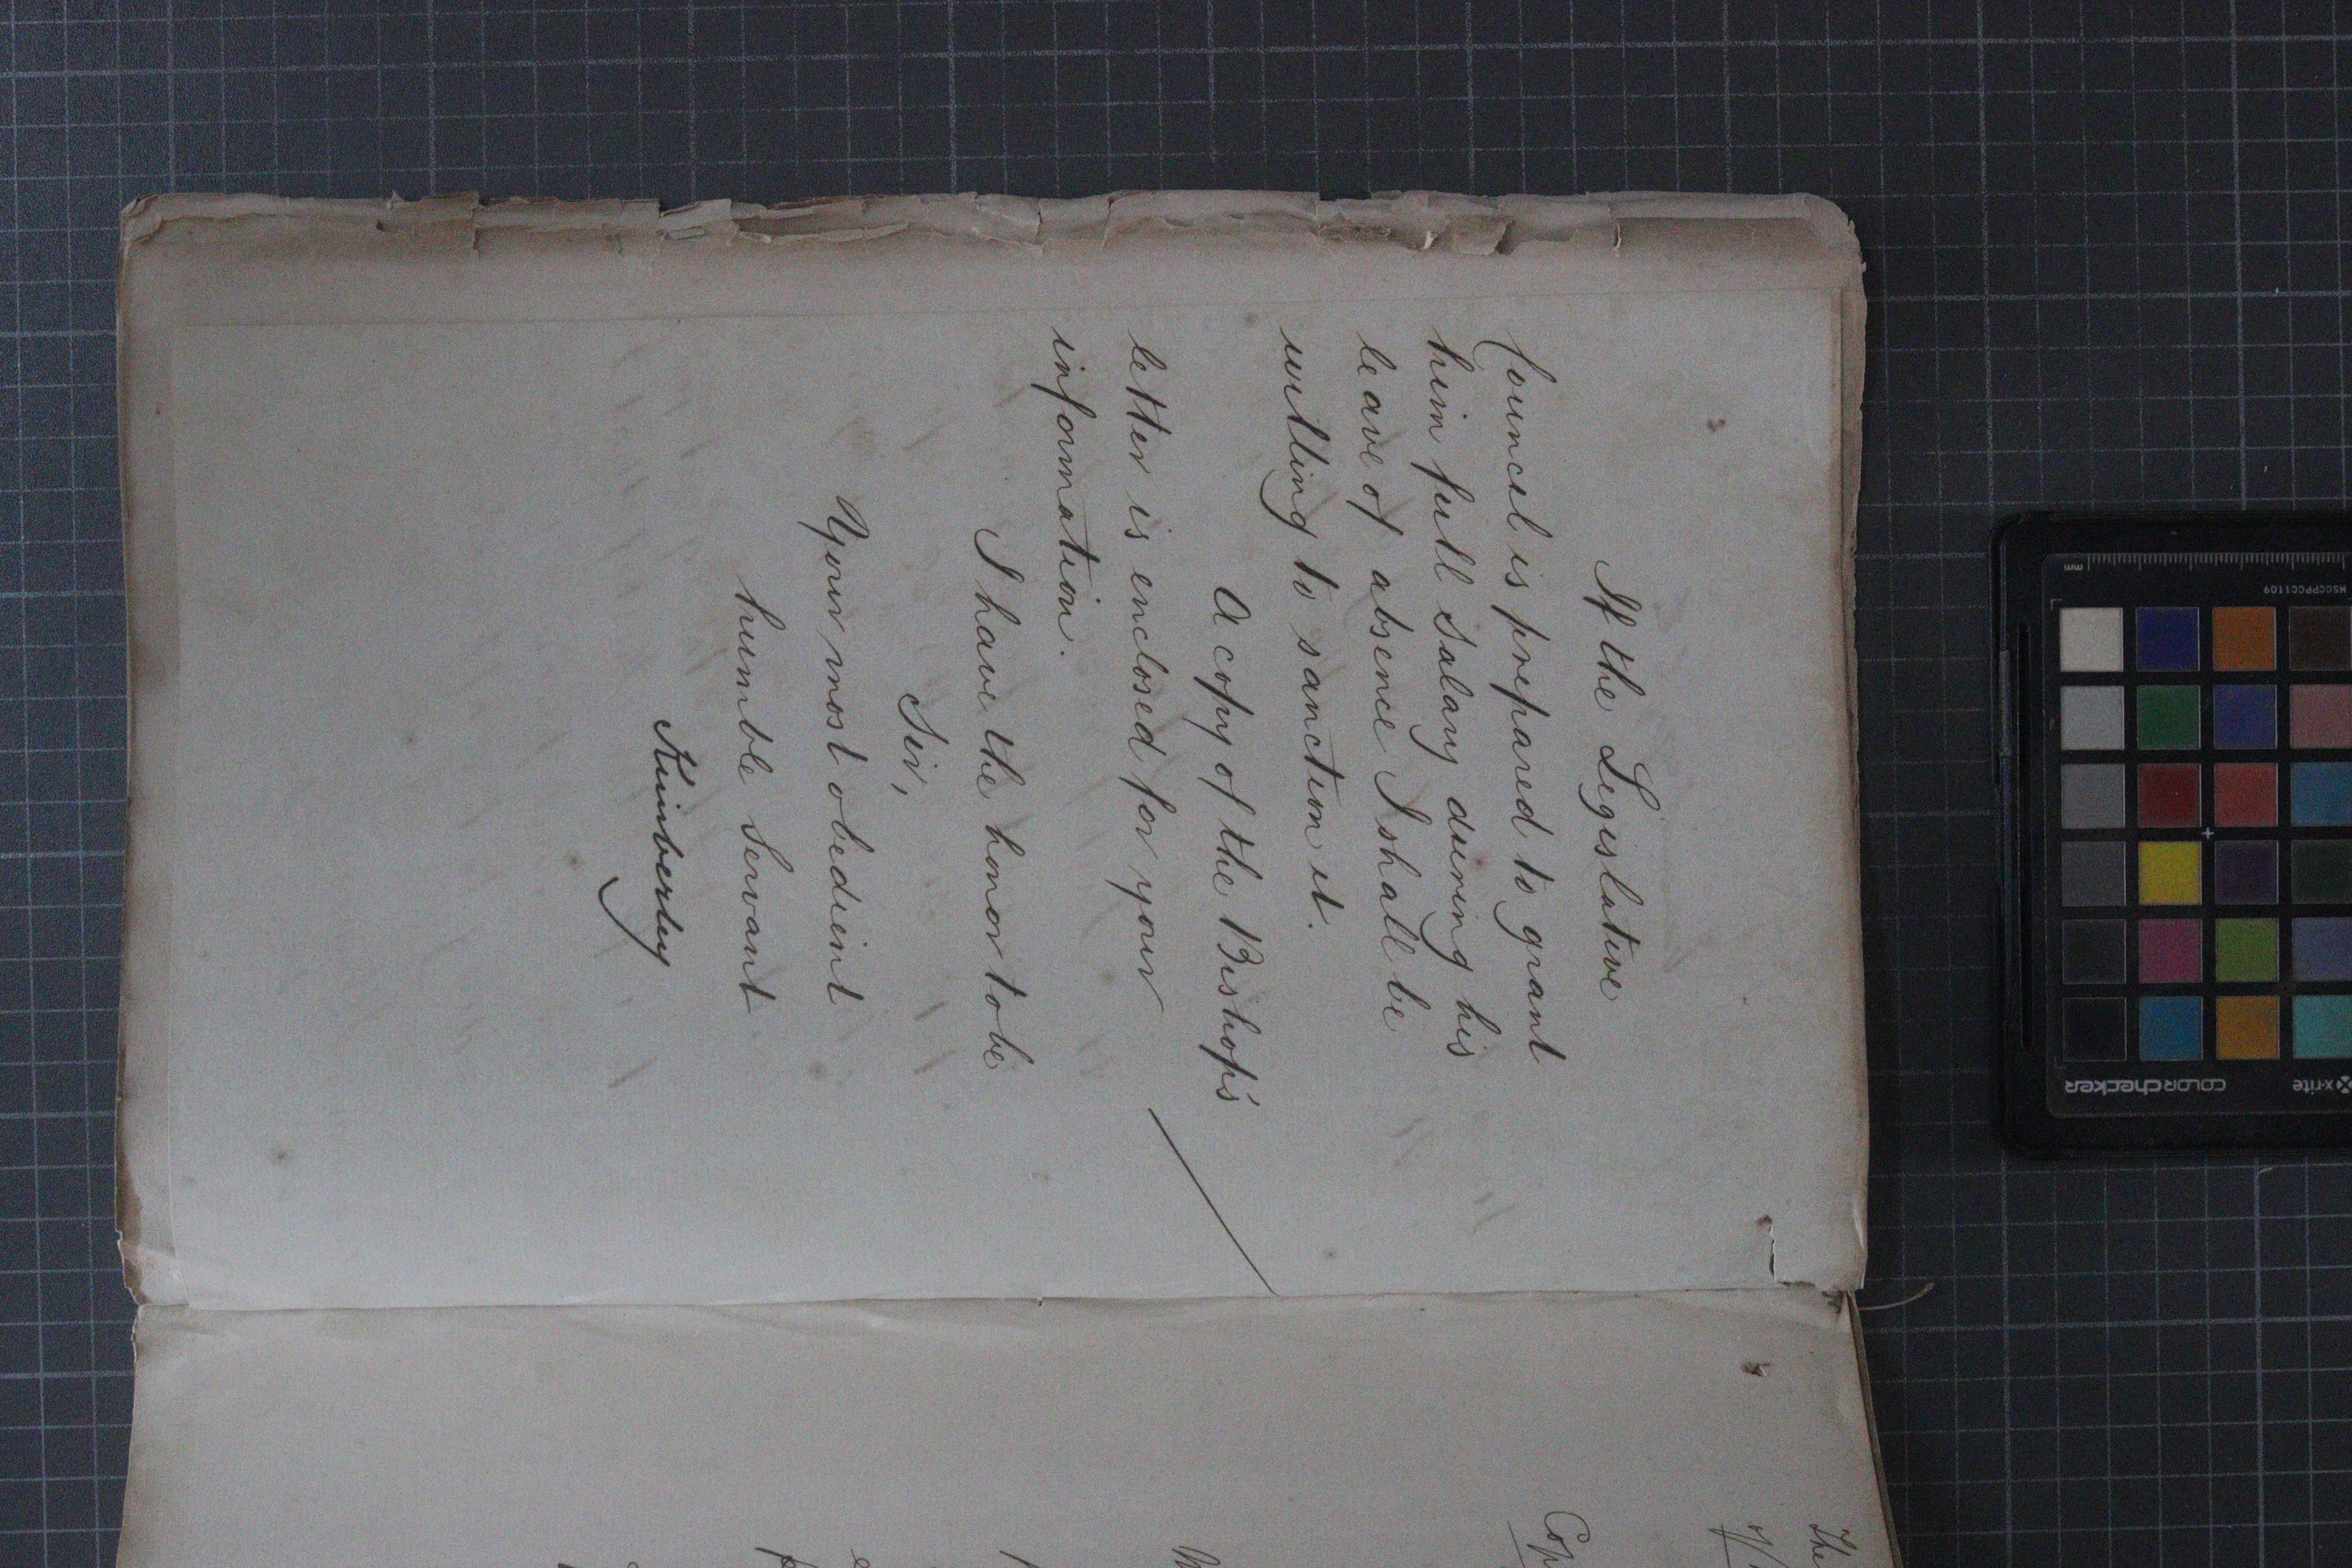 If the Legislative
Council is prepared to grant
him full salary during his
leave of absence I shall be
willing to sanction it.
A copy of the Bishop's
letter is enclosed for your
information.
I have the honor to be
Sir,
Your most obedient
humble Servant
Kimberley
The
Cop
mm
MSCCPPCC1109
colorchecker
x-rite